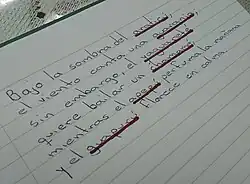 Bajo la sombra del
el viento canta, una
sin embargo, el
quiere bailar un
mientras el perfuma la mañana
y el florece en calma.